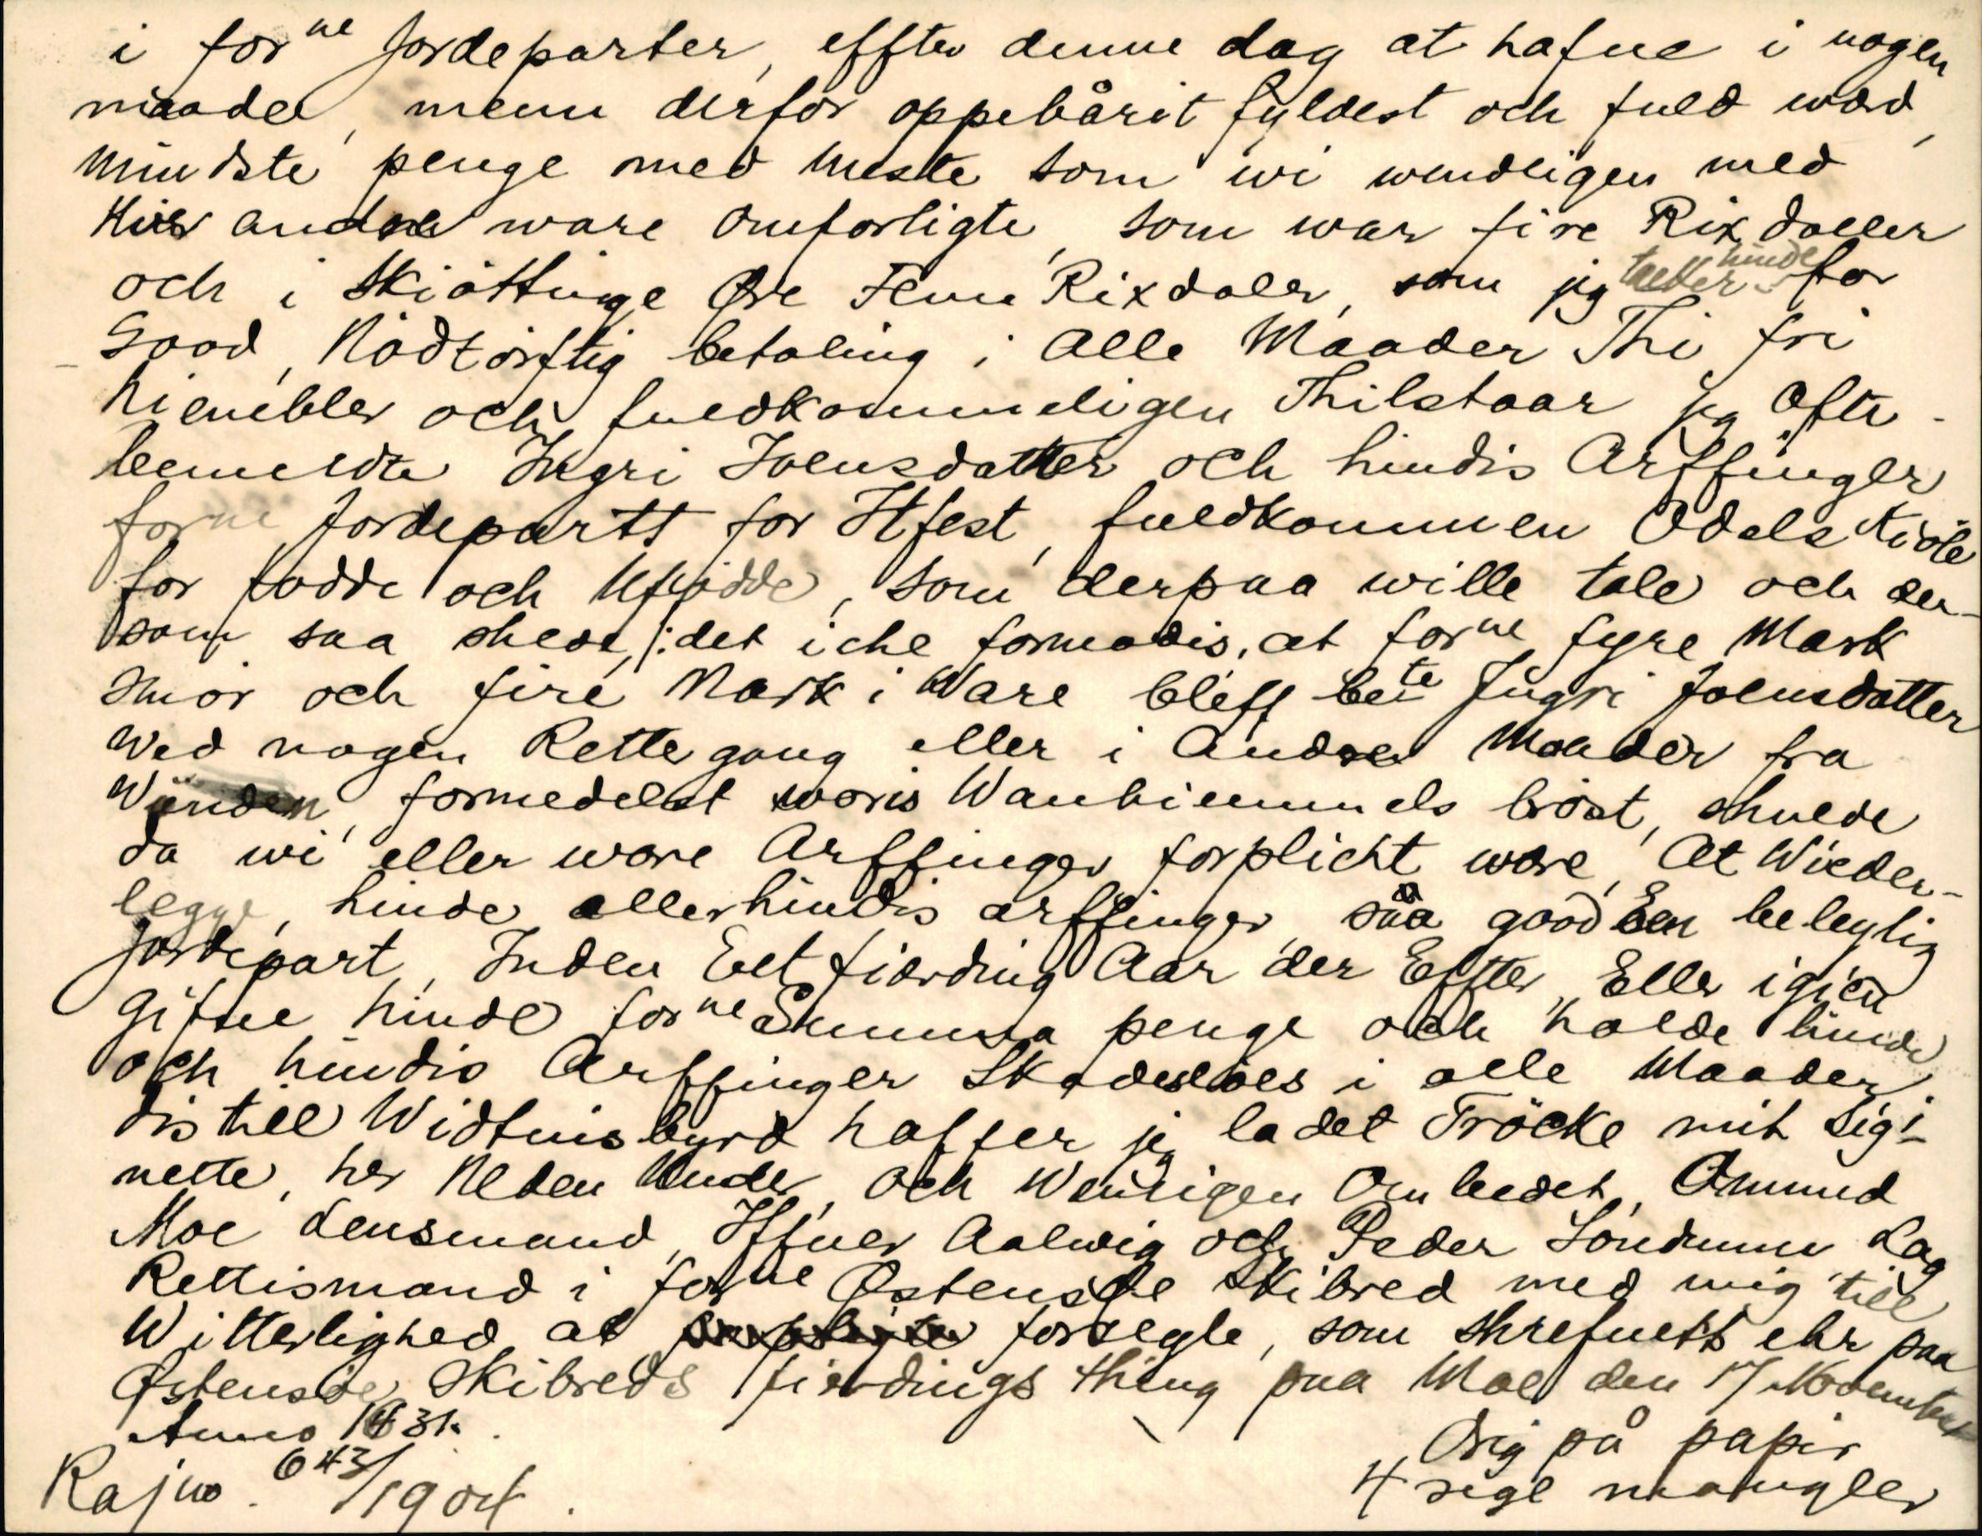 i forne Jordeparter, effter denne dag at hafne i nogen
maade, menn derfor oppebårit fyldest och fuld wærd,
mindste penge med meste som wi wendligen med
Hier andre ware omforligte, som war fire Rix daller
och i Skiøttnige Øre Femi Rixdaler, som jeg tacker hinde for
Good, Nödtörftig betaling i Alle Maader Thi fri
hiembler och fuldkommeligen Thilstaar jeg Ofte-
bemeldte Ingri Joensdatter och hindis Arffinger
forne Jordepartt for Itfest, fuldkommen Odels Kiöb
for fødde och Ufödde, som derpaa wille tale och der-
som saa skede, /: det iche formodis, at forne fyre Mark
Smör och fire Mark i Ware bleff bete Jngri Joensdatter
Wed nogen Rette gang eller i Andre Maader fra
Wunden, formedelst woris Wanhiemmels bröst, skulde
da wi eller wore Arffinger forplicht wære, At Wieder-
legge, hinde eller hindis arffinger saa good Een beleylig
Jordepart, Inden Eet fierding Aar der Effter, Eller igien
Gifue hinde forne Summa penge och holde hinde
och hindis Arffinger Skadesløes i alle Maader
dis till Widtnisbyrd haffer jeg ladet Tröcke mit Sig-
nette, her Neden Under, och Wenligen Om beedet, Omund
Moe Lensmand, Iffuer Aalwig och Peder Söndunn Lag
Rettismand i forne Østensøe Skibred med mig till
Witterlighed at forsegle, som skrefuett ehr paa
Østensøe Skibreds fierdings thing paa Moe den 17 November
Anno 1631.
Orig på papir
4 segl mangler
Rajno. 643/1904.